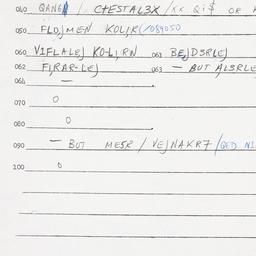 040 QANG / CTESTAL3X / XX Qi$ OR
050 FLOJMEN KOLIR (/084050
060 VIFLALEJ KO-LIRN 061 BEJDSRLEJ
062 FIRAR-LEJ 063 — BUT ALSRLE
064 —
070 O
080 O
090 — BUT MESR / VEJNAKR7 / QED NI
100 O